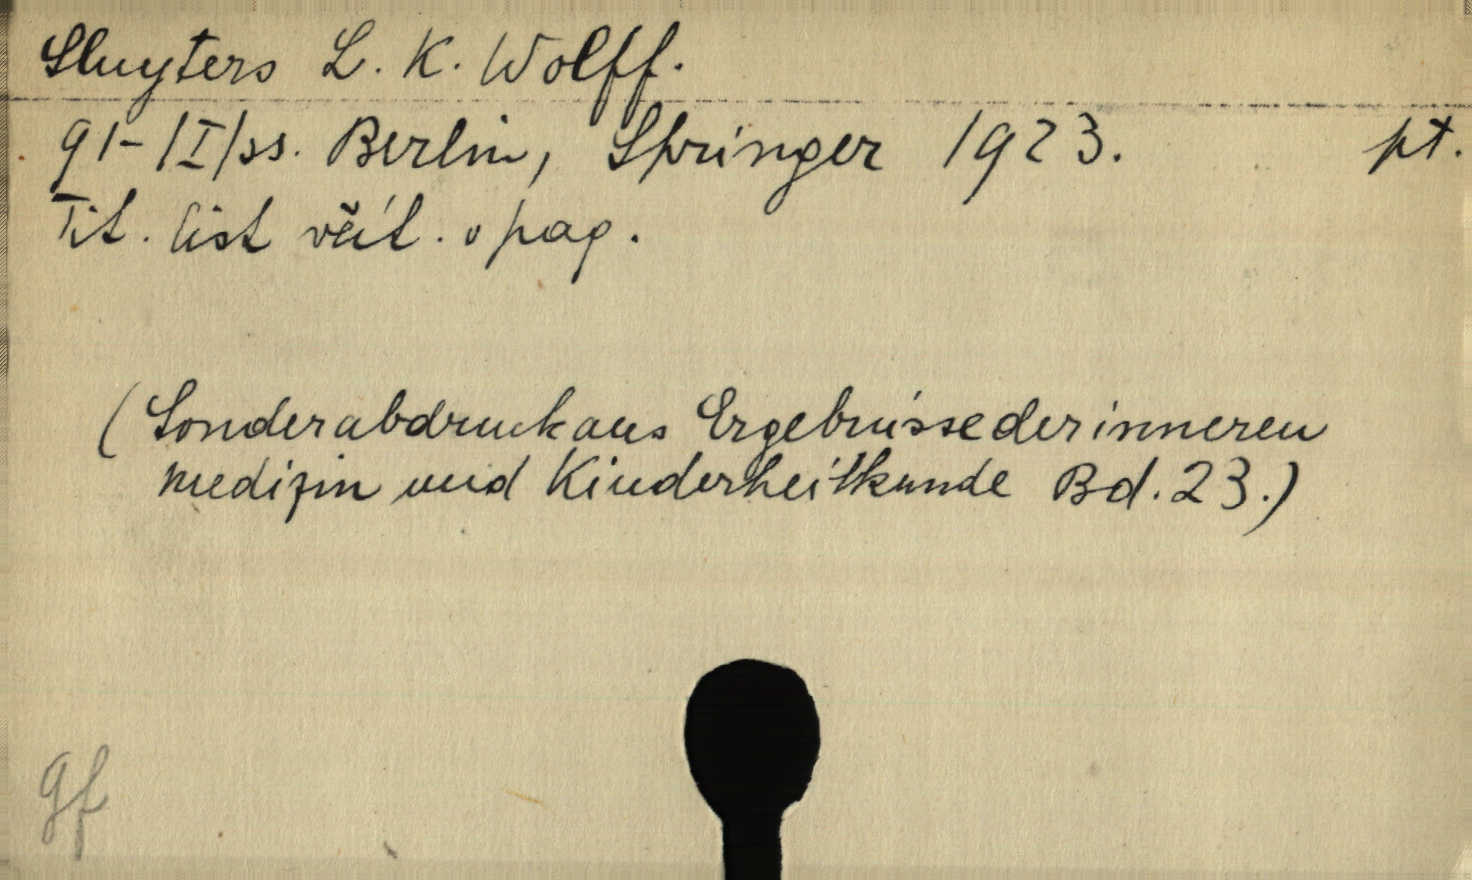 Sluyters L. K. Wolff.
91-/I/ss. Berlin, Springer 1923. pt.
Tit. list včít. v pag.
(Sonderabdruck aus Ergebnisse der inneren
Medizin und Kinderheilkunde Bd. 23.)
gf